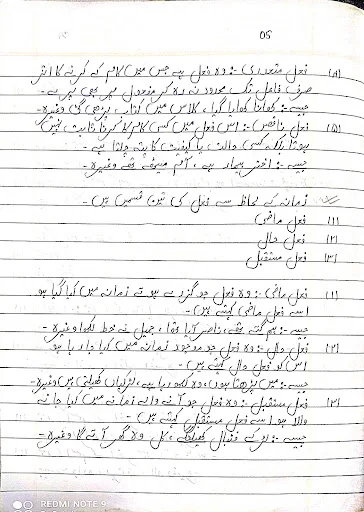 05
(۴) فعل متعدی :- وہ فعل ہے جس میں کام کے کرنے کا اثر
صرف فاعل تک محدود نہ رہ کر مفعول پر بھی پڑے۔
جیسے :- کھانا کھایا گیا، کلاس میں کتاب پڑھی گئی وغیرہ۔
(۵) فعل ناقص :- اس فعل میں کسی کام کا کرنا ثابت نہیں
ہوتا بلکہ کسی حالت یا کیفیت کا پتہ چلتا ہے۔
جیسے :- اختر بیمار ہے، آم میٹھے تھے وغیرہ۔
زمانہ کے لحاظ سے فعل کی تین قسمیں ہیں۔
(۱) فعل ماضی
(۲) فعل حال
(۳) فعل مستقبل
(۱) فعل ماضی :- وہ فعل جو گزرے ہوئے زمانہ میں کیا گیا ہو
اسے فعل ماضی کہتے ہیں۔
جیسے :- ہم گئے تھے، ناصر آیا تھا، جمیل نے خط لکھا وغیرہ۔
(۲) فعل حال :- وہ فعل جو موجود زمانہ میں کیا جا رہا ہو
اس کو فعل حال کہتے ہیں۔
جیسے :- میں پڑھتا ہوں، وہ لکھ رہا ہے، لڑکیاں کھیلتی ہیں وغیرہ۔
(۳) فعل مستقبل :- وہ فعل جو آنے والے زمانہ میں کیا جانے
والا ہو اسے فعل مستقبل کہتے ہیں۔
جیسے :- لڑکے فٹبال کھیلیں گے، کل وہ گھر آئے گا وغیرہ۔
REDMI NOTE 9